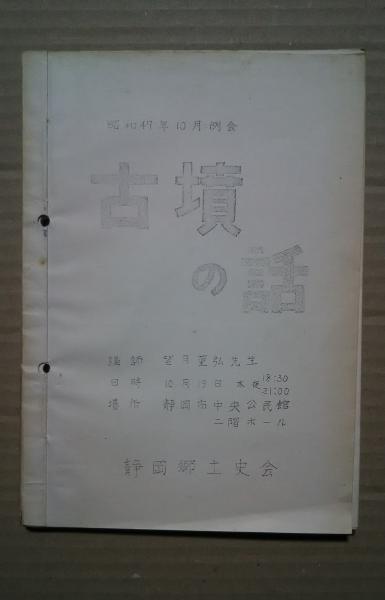 昭和47年10月例会
古墳
の話
講師 望月董弘先生
日時 10月19日 木夜 18:30
21:00
場所 静岡市中央公民館
二階ホール
静岡郷土史会